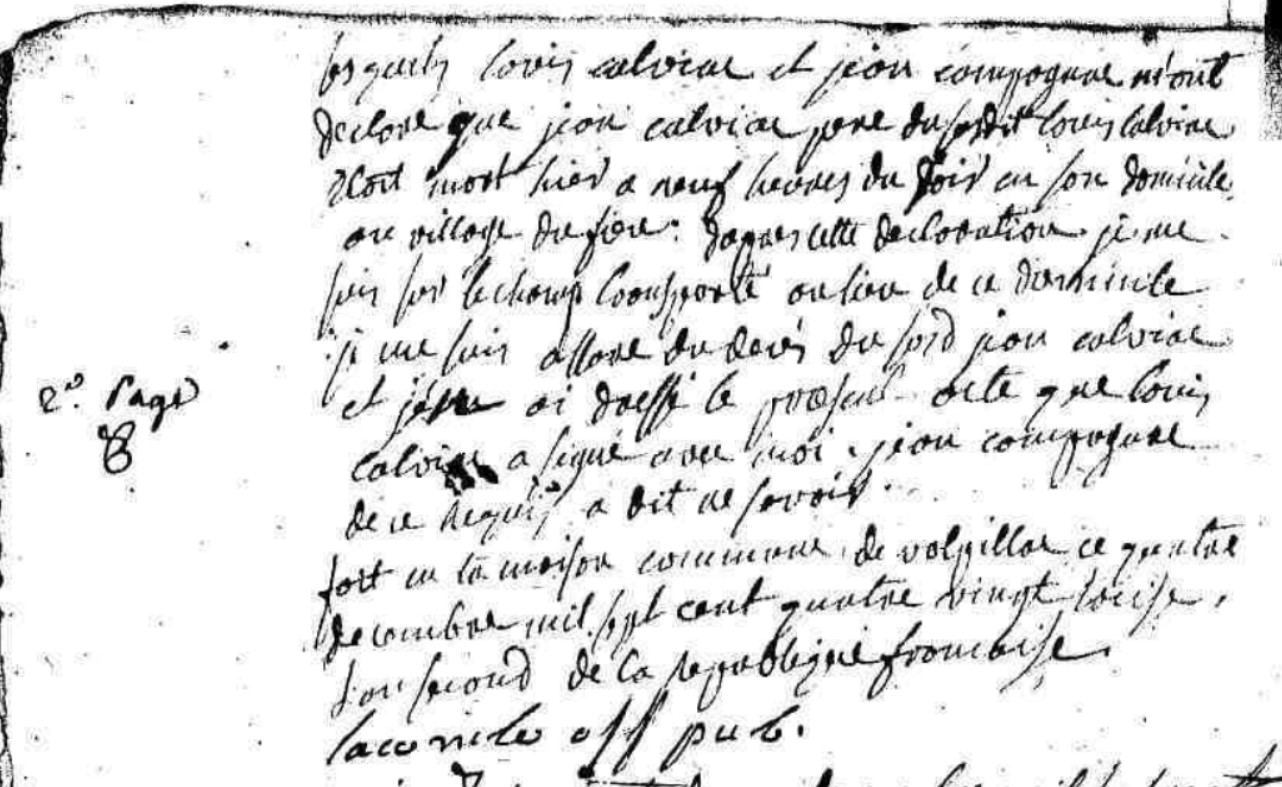 lesquels louis calviac et jean compagnac m'ont
declare que jean calviac pere du susdit louis calviac
etoit mort hier a neuf heures du soir en son domicile
au village du : dapres cette declaration je me
suis sur le champ transporté au lieu de ce domicile
je me suis assure du deces du susd jean calviac
et ai dressé le present acte que louis
calviac a signé avec moi. jean compagnac
de ce requis a dit ne savoir.
2e. Page
fait en la maison commune de valpillac ce quatre
decembre mil sept cent quatre vingt treise,
l'an second de la republique francaise.
off pub.